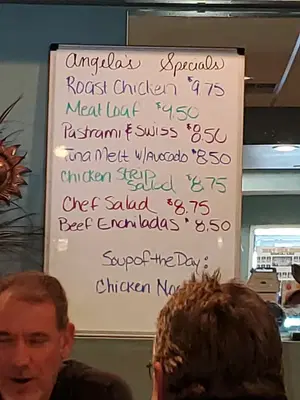 Angela's Specials
Roast Chicken $9.75
Meat Loaf $9.50
Pastrami & Swiss $8.50
Tuna Melt w/Avocado $8.50
Chicken Strip
Salad $8.75
Chef Salad $8.75
Beef Enchiladas $8.50
Soup of the Day:
Chicken Noo